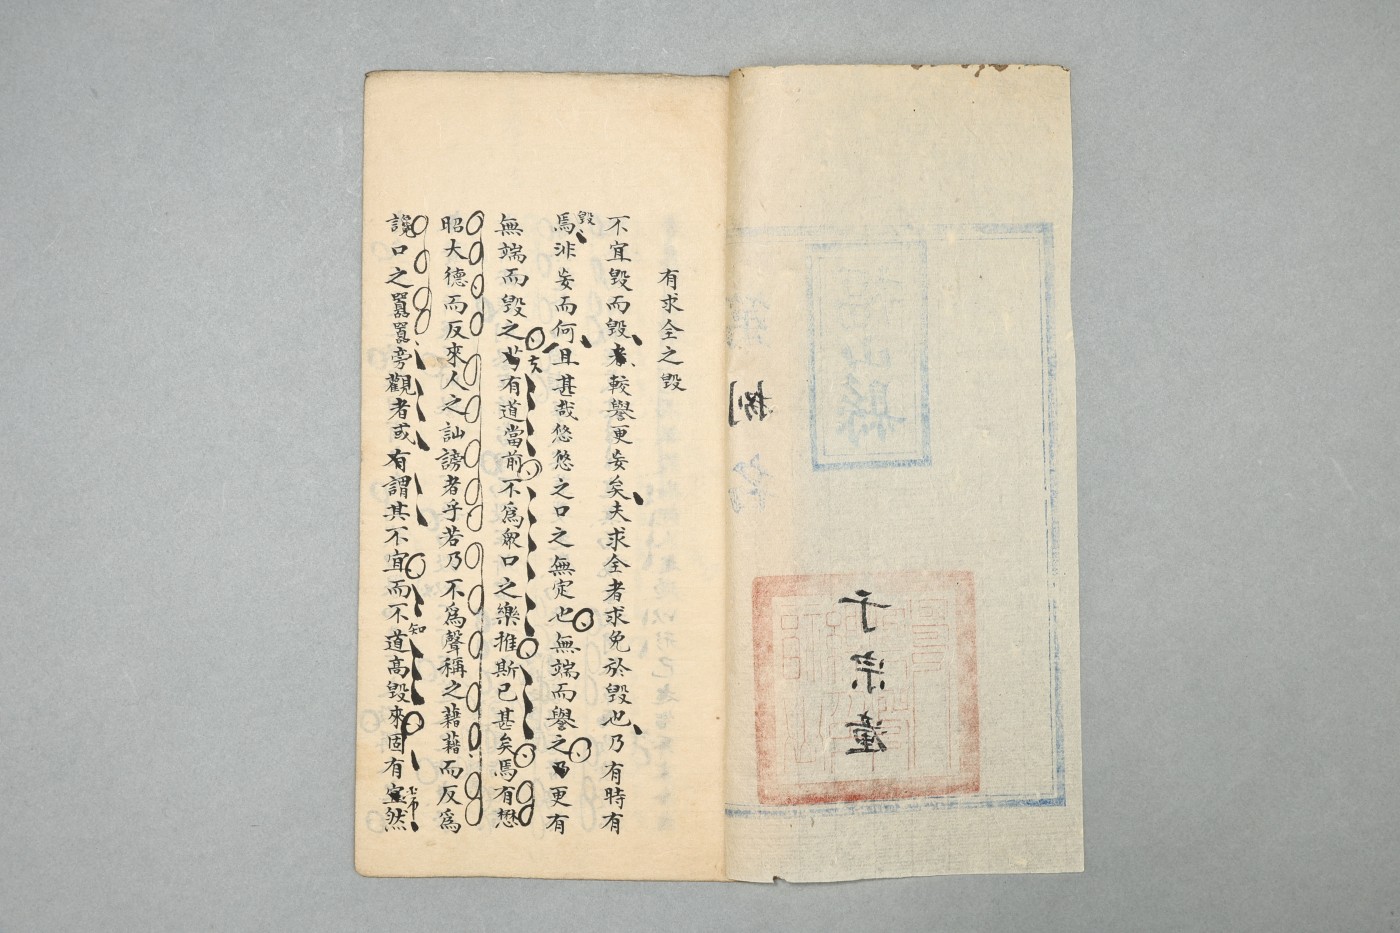 于宗潼
捌
有求全之毀
不宜毀而毀者較譽更妄矣夫求全者求免於毀也乃有時有
毀
焉泚妄而何且甚哉悠悠之口之無定也無端而譽之乃更有
無端而毀之者有道當前不爲衆口之樂推斯已甚矣焉有懋
昭大德而反來人之訕謗者乎若乃不爲聲稱之藉藉而反爲
讒口之囂囂旁觀者或有謂其不宜而不道高毀來固有宜然
知